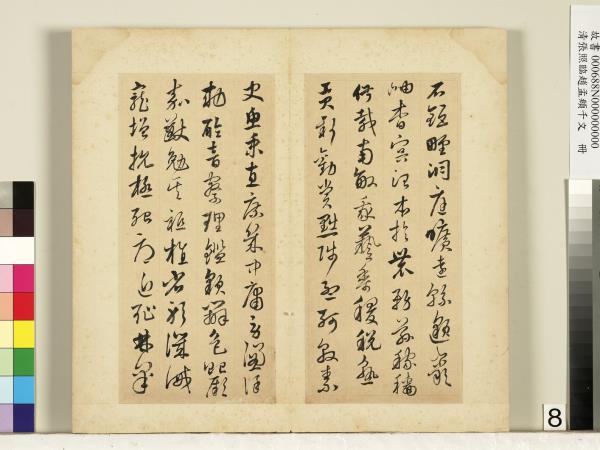 石鉅野洞庭曠遠綿邈巖
岫杳冥治本於農務茲稼穡
俶載南畝我藝黍稷稅熟
貢新勸賞黜陟孟軻敦素
史魚秉直庶幾中庸勞謙謹
勑聆音察理鑑貌辨色貽厥
嘉猷勉其祗植省躬譏誡
寵增抗極殆辱近恥林皋
故書 000688N000000000
清張照臨趙孟頫千文 冊
8